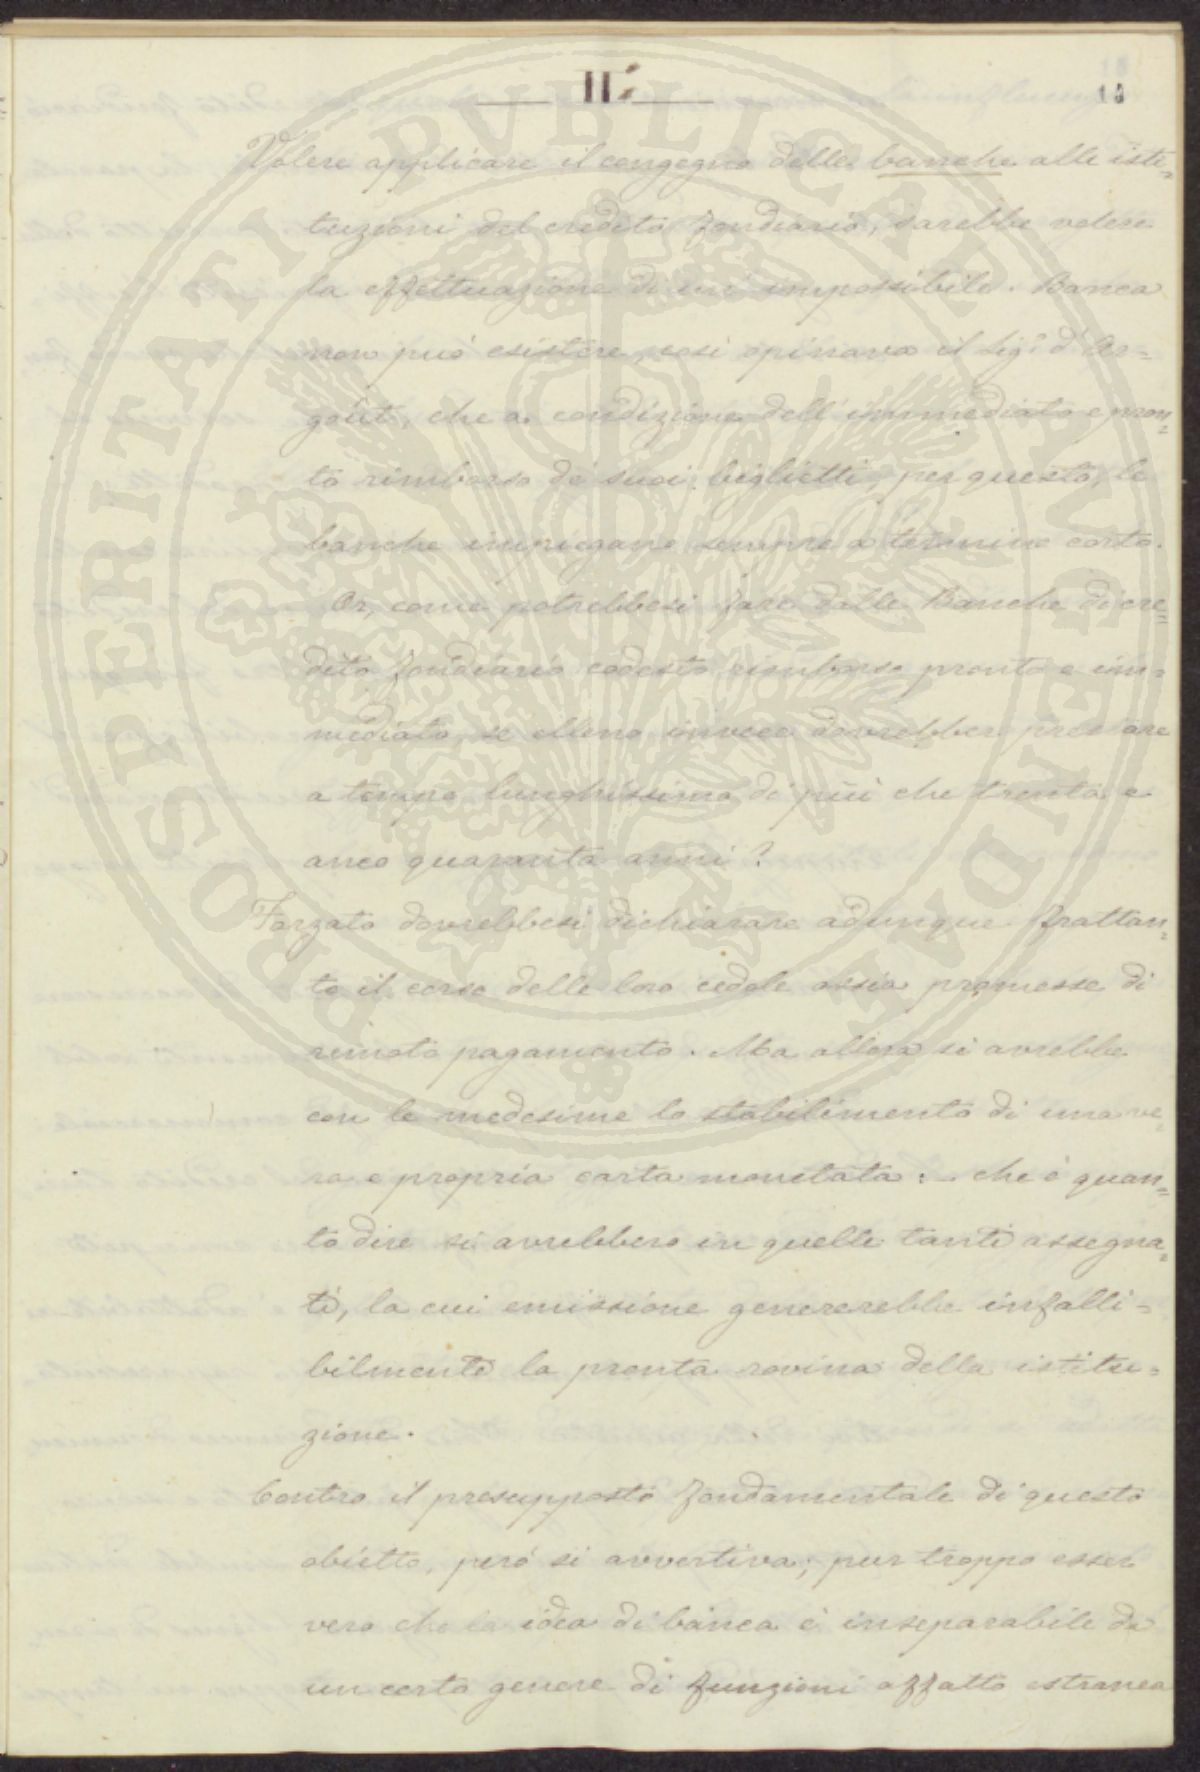 II.
15
Volere applicare il congegno delle banche alle isti=
tuzioni del credito fondiario, sarebbe volere
la effettuazione di un' impossibile. Banca
non può esistere, così opinava il Sig.r d'Ar=
goût, che a condizione dell'immediato e pron=
to rimborso de' suoi biglietti, per questo, le
banche impiegano sempre a termine corto.
Or, come potrebbesi fare dalle Banche di cre=
dito fondiario codesto rimborso pronto e im=
mediato, se elleno invece dovrebbero prestare
a tempo lunghissimo di più che trenta e
anco quaranta anni?
Forzato dovrebbesi dichiarare adunque frattan=
to il corso delle loro cedole ossia promesse di
remoto pagamento. Ma allora si avrebbe
con le medesime lo stabilimento di una ve=
ra e propria carta monetata: che è quan=
to dire si avrebbero in quelle tanti assegna=
ti, la cui emissione genererebbe infalli=
bilmente la pronta rovina della istitu=
zione.
Contro il presupposto fondamentale di questo
obietto, però si avvertiva; pur troppo esser
vero che la idea di banca è inseparabile da
un certo genere di funzioni affatto estranea
PROSPERITATI PVBLICAE AVGENDAE